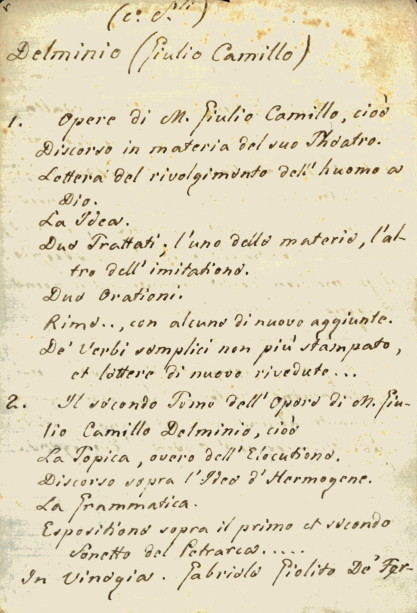 Delminio (Giulio Camillo)
1. Opere di M. Giulio Camillo, cioè
Discorso in materia del suo Theatro.
Lettera del rivolgimento dell' huomo a
Dio.
La Idea.
Due Trattati; l'uno delle materie, l'al-
tro dell' imitatione.
Due Orationi.
Rime.., con alcune di nuovo aggiunte.
De' Verbi semplici non più stampato,
et lettere di nuovo rivedute...
2. Il secondo Tomo dell' Opere di M. Giu-
lio Camillo Delminio, cioè
La Topica, overo dell' Elocutione.
Discorso sopra l'Idee d'Hermogene.
La Grammatica.
Espositione sopra il primo et secondo
Sonetto del Petrarca.....
In Vinegia. Gabriele Giolito De' Fer-